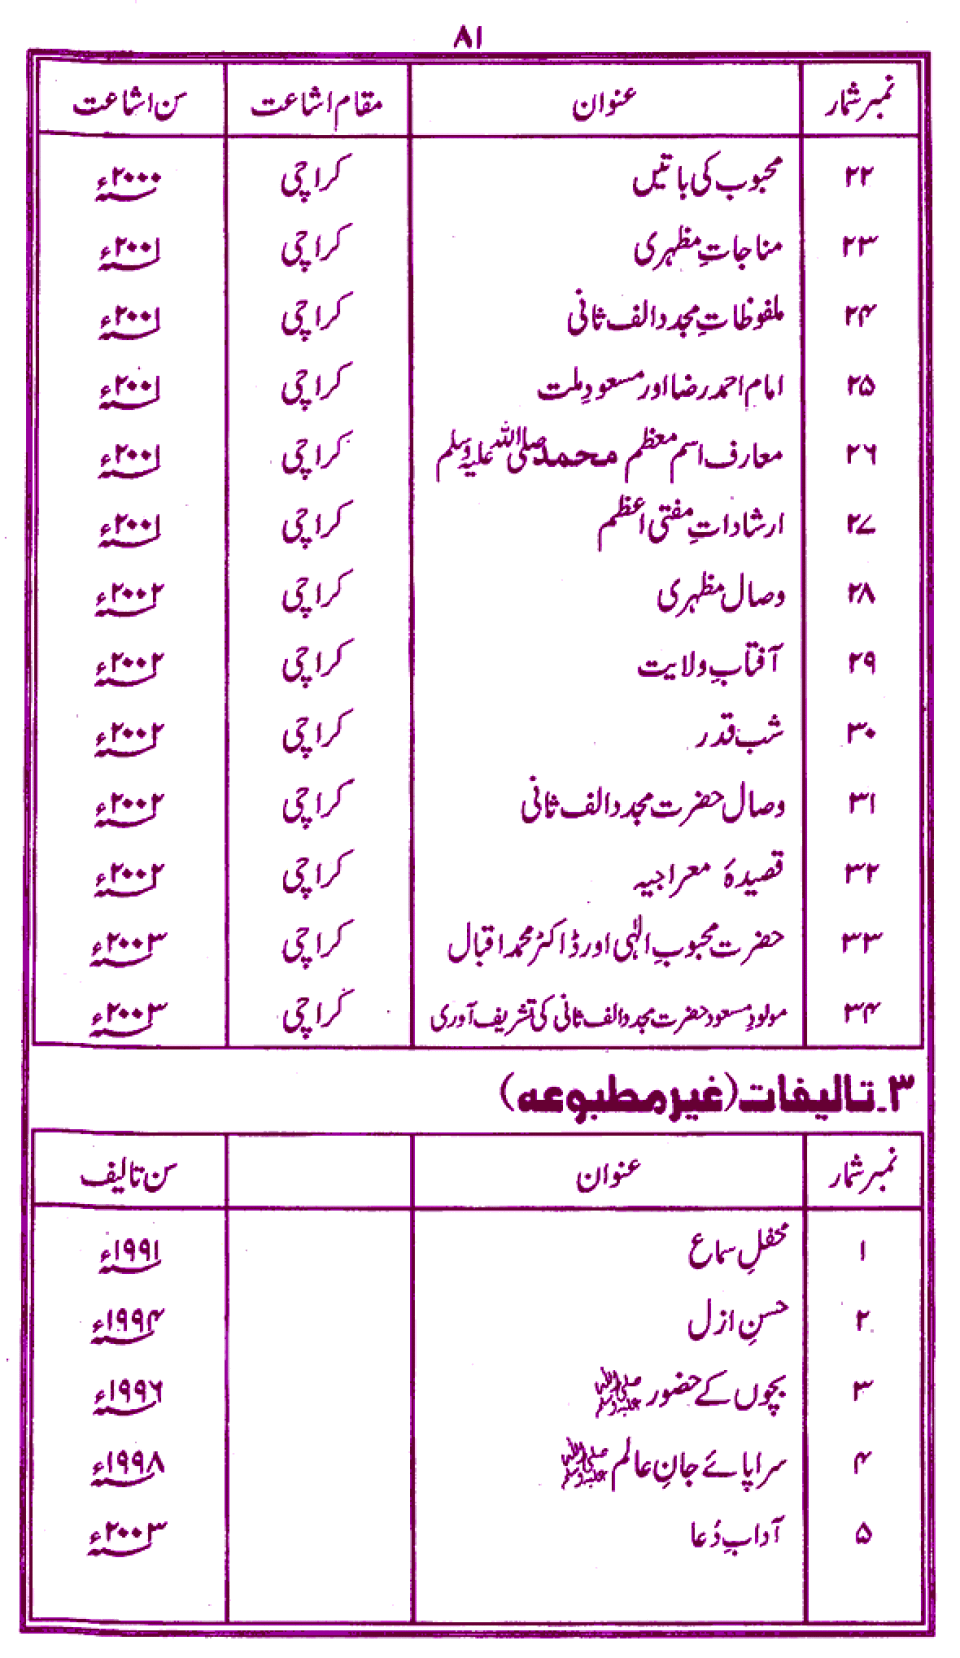 ۸۱
نمبر شمار عنوان مقام اشاعت سن اشاعت
۲۲ محبوب کی باتیں کراچی ۲۰۰۰ء
۲۳ مناجاتِ مظہری کراچی ۲۰۰۱ء
۲۴ ملفوظاتِ مجدد الف ثانی کراچی ۲۰۰۱ء
۲۵ امام احمد رضا اور مسعودِ ملت کراچی ۲۰۰۱ء
۲۶ معارف اسم معظم محمد صلی اللہ علیہ وسلم کراچی ۲۰۰۱ء
۲۷ ارشاداتِ مفتی اعظم کراچی ۲۰۰۱ء
۲۸ وصال مظہری کراچی ۲۰۰۲ء
۲۹ آفتابِ ولایت کراچی ۲۰۰۲ء
۳۰ شب قدر کراچی ۲۰۰۲ء
۳۱ وصال حضرت مجدد الف ثانی کراچی ۲۰۰۲ء
۳۲ قصیدۂ معراجیہ کراچی ۲۰۰۲ء
۳۳ حضرت محبوبِ الٰہی اور ڈاکٹر محمد اقبال کراچی ۲۰۰۳ء
۳۴ مولودِ مسعود حضرت مجدد الف ثانی کی تشریف آوری کراچی ۲۰۰۳ء
۳۔تالیفات (غیر مطبوعہ)
نمبر شمار عنوان سن تالیف
۱ محفلِ سماع ۱۹۹۱ء
۲ حسنِ ازل ۱۹۹۴ء
۳ بچوں کے حضور صلی اللہ علیہ وسلم ۱۹۹۶ء
۴ سراپائے جانِ عالم صلی اللہ علیہ وسلم ۱۹۹۸ء
۵ آدابِ دُعا ۲۰۰۳ء